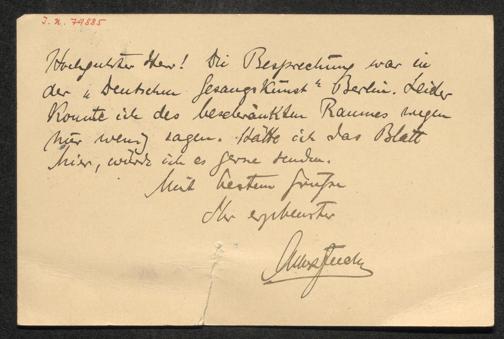 I. N. 79885
Hochgeehrter Herr! Die Besprechung war in
der „Deutschen Gesangskunst“ Berlin. Leider
konnte ich des beschränkten Raumes wegen
nur wenig sagen. Hätte ich das Blatt
hier, würde ich es gerne senden.
Mit bestem Gruße
Ihr ergebenster